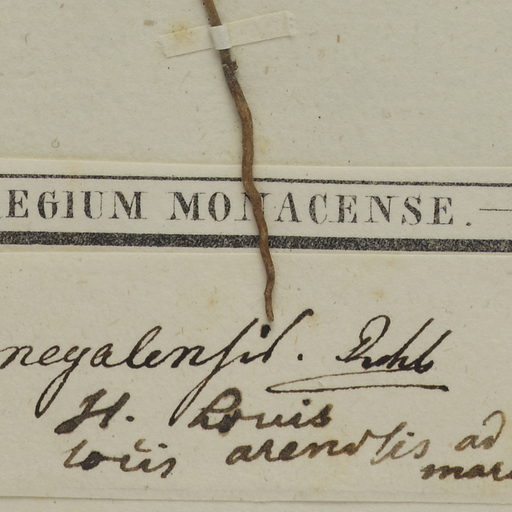 EGIUM MONACENSE.
negalensis.
St. Louis
locis arenosis ad
mar